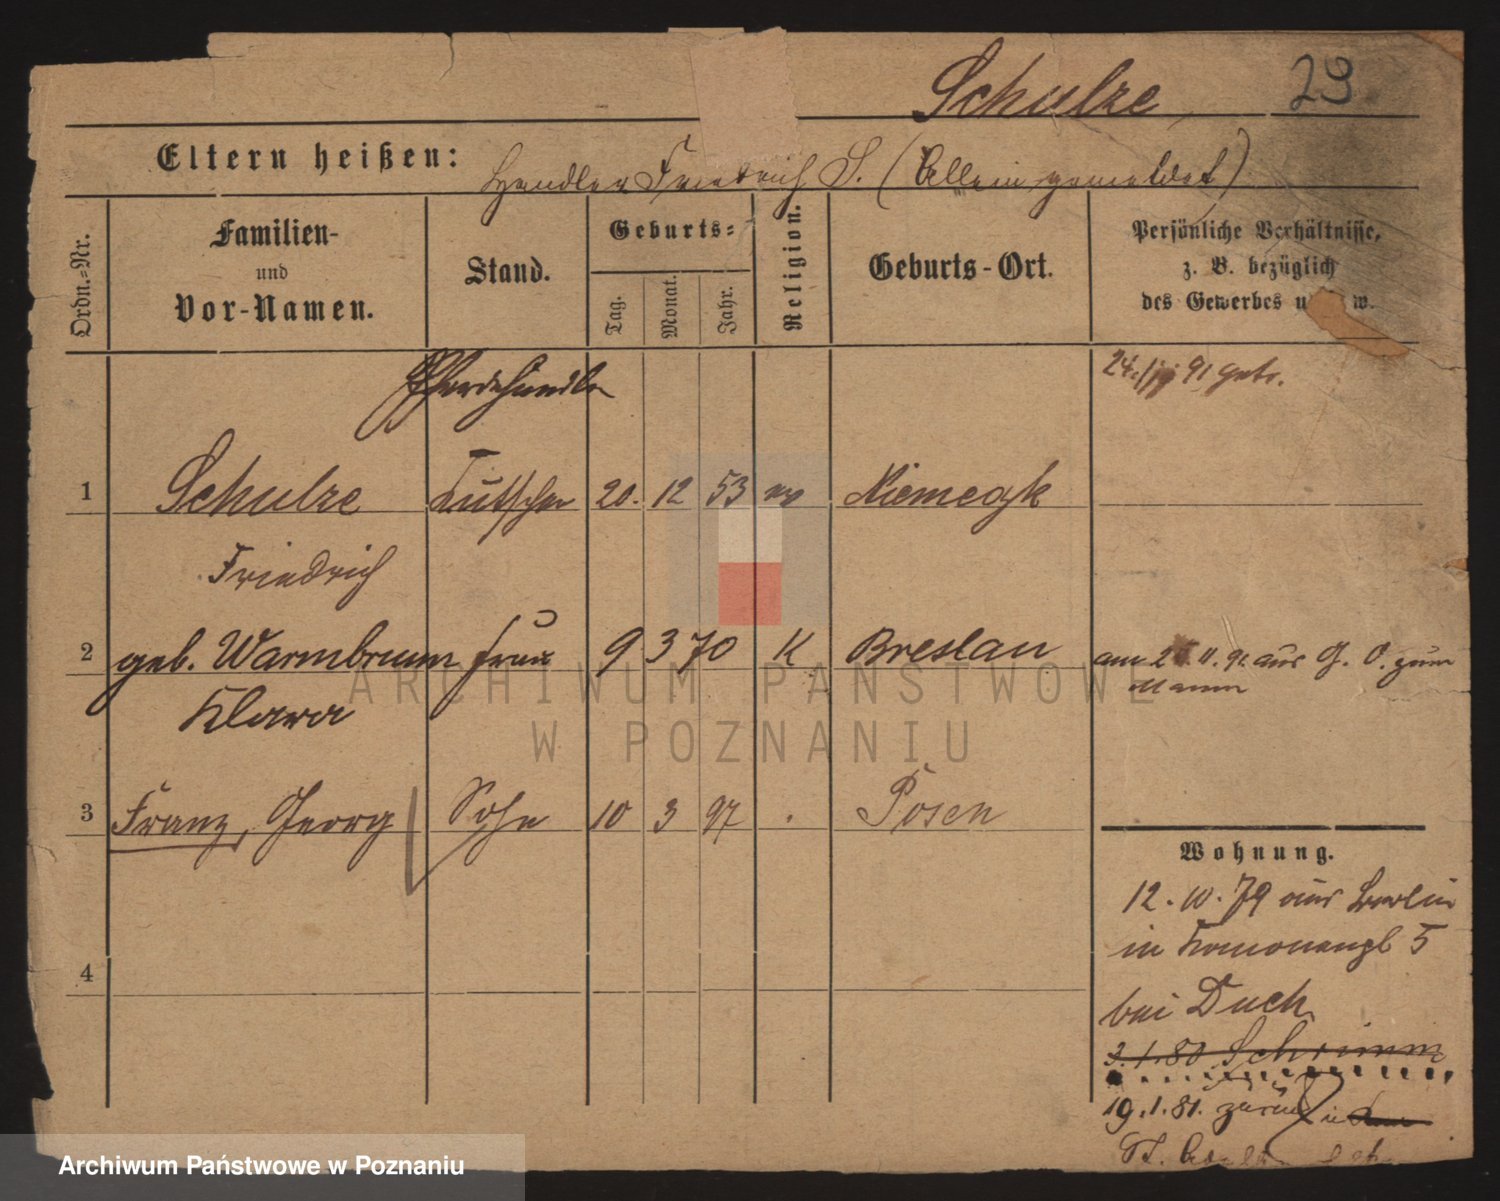 Schulze 29
Eltern heißen: Handler Friedrich S. (Allein gemeldet)
Ordn.=Nr.
Familien- und Vor-Namen.
Stand.
Geburts=
Tag.
Monat.
Jahr.
Religion.
Geburts-Ort.
Persönliche Verhältnisse,
z. B. bezüglich
des Gewerbes u w.
Pferdehändler
24. 91 getr.
1 Schulze Kutscher 20. 12 53 ev Niemegk
Friedrich
2 geb. Warmbrunn Frau 9 3 70 K Breslau
am 2 11. 91. aus G. O. zum
Mann
Klara
3 Franz, Georg Sohn 10 3 97 Posen
4
Wohnung.
12. 10. 79 aus Berlin
in 5
bei Duch
3. 1. 80 Schrimm
19. 1. 81. zurück
St.
ARCHIWUM PAŃSTWOWE
W POZNANIU
Archiwum Państwowe w Poznaniu